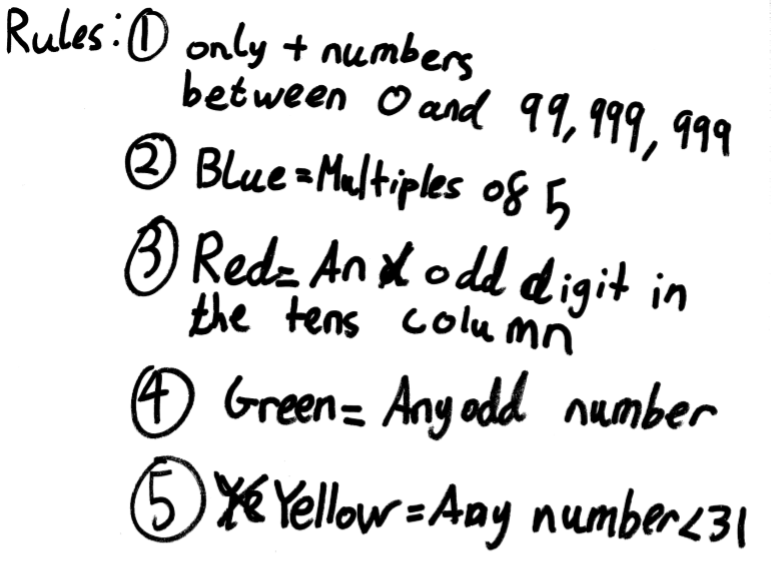 Rules: ① only + numbers
between 0 and 99,999,999
② Blue = Multiples of 5
③ Red = An odd digit in
the tens column
④ Green = Any odd number
⑤ Yellow = Any number < 31